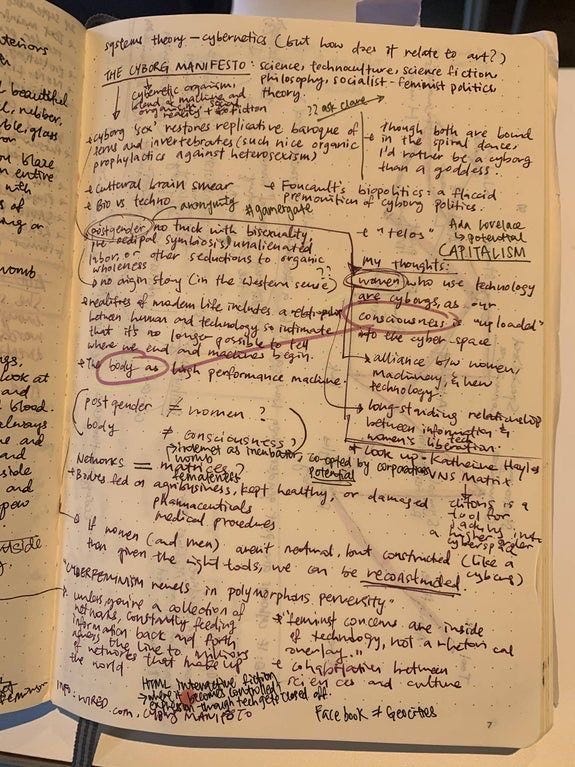 systems theory — cybernetics (but how does it relate to art?)
THE CYBORG MANIFESTO: science, technoculture, science fiction,
philosophy, socialist-feminist politics,
theory.
cybernetic organism,
blend of machine and
organicity +
fiction
?? ask
• Cyborg 'sex' restores replicative baroque of
ferns and invertebrates (such nice organic
prophylactics against heterosexism)
• Though both are bound
in the spiral dance,
I'd rather be a cyborg
than a goddess.
• Cultural brain smear
• Bio vs techno
• Foucault's biopolitics: a flaccid
premonition of cyborg politics.
anonymity
#gamergate
• postgender no truck with bisexuality,
pre-oedipal symbiosis, unalienated
labor, or other seductions to organic
wholeness
• no origin story (in the Western sense)
??
• realities of modern life includes a relationship
between human and technology so intimate
that it's no longer possible to tell
where we end and machines begin.
• The body as high performance machine.
• "telos"
Ada Lovelace
↳ potential
CAPITALISM
my thoughts:
women who use technology
are cyborgs, as our
consciousness is "uploaded"
to the cyber-space
→ alliance b/w women,
machinery, & new
technology.
→ long-standing relationship
between information &
tech
women's liberation.
• Look up - Katherine Hayles
VNS Matrix
postgender ≠ women?
body
≠ consciousness?
Networks = matrices?
womb
femaleness
→ internet as incubator, co-opted by corporations
potential
• Bodies fed on agribusiness, kept healthy, or damaged
pharmaceuticals
medical procedures
is a
tool for
packing
a higher into
cyberspace
• If women (and men) aren't natural, but constructed (like a
cyborg)
than given the right tools, we can be reconstructed.
"CYBERFEMINISM revels in polymorphous perversity"
unless, you're a collection of
networks, constantly feeding
information back and forth
across the line to millions
of networks that make up
the world.
• "feminist concerns are inside
of technology, not a rhetorical
overlay."
• cohabitation between
sciences and culture
HTML interactive fiction
→ where it becomes controlled
expression through tech gets closed off.
INFO: WIRED.com, CYBORG MANIFESTO
Facebook ≠ Geocities
7